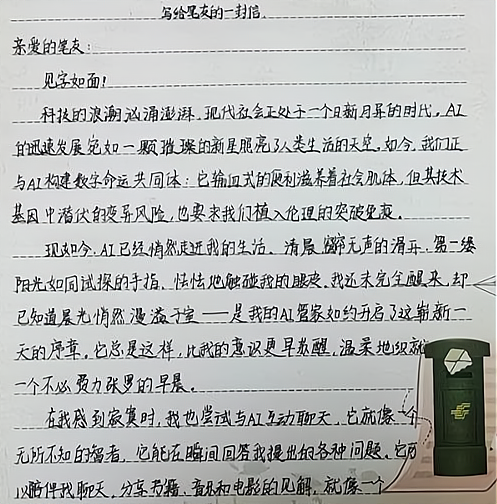 写给笔友的一封信
亲爱的笔友:
见字如面!
科技的浪潮汹涌澎湃,现代社会正处于一个日新月异的时代,AI
的迅速发展宛如一颗璀璨的新星照亮了人类生活的天空。如今,我们正
与AI构建数字命运共同体:它输血式的便利滋养着社会肌体,但其技术
基因中潜伏的变异风险,也要求我们植入伦理的突破免疫。
现如今,AI已经悄然走进我的生活。清晨,窗帘无声的滑开,第一缕
阳光如同试探的手指,怯怯地触碰我的眼皮。我还未完全醒来,却
已知道晨光悄然漫溢于室——是我的AI管家如约开启了这崭新一
天的序章。它总是这样,比我的意识更早苏醒,温柔地织就
一个不必费力张罗的早晨。
在我感到寂寞时,我也尝试与AI互动聊天,它就像一个
无所不知的智者,它能在瞬间回答我提出的各种问题。它可
以陪伴我聊天,分享书籍,音乐和电影的见解,就像一个